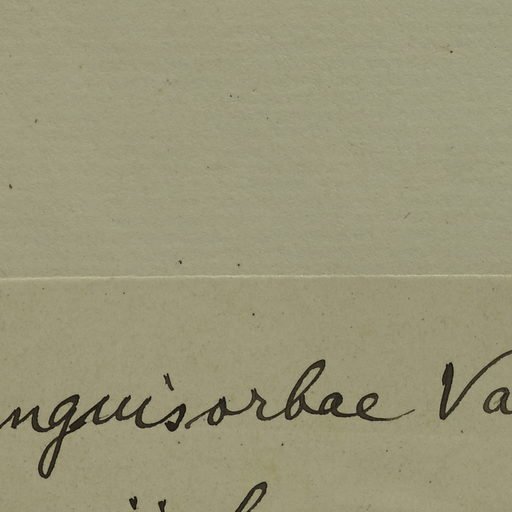 nguisorbae Va